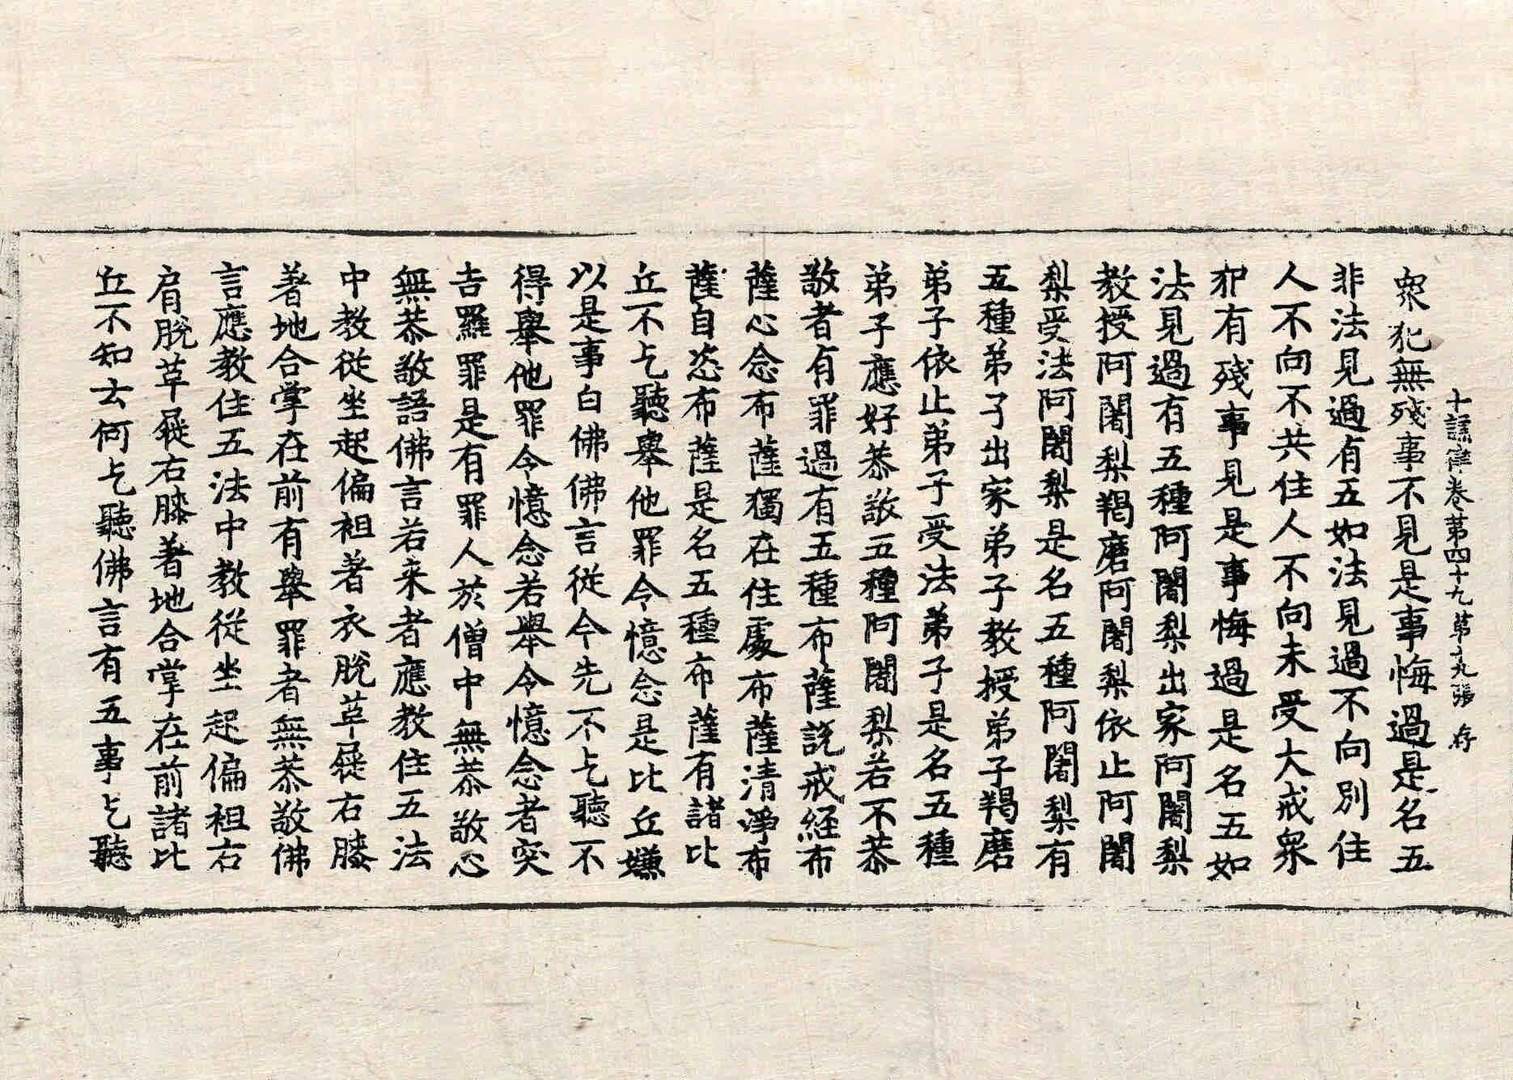 十誦律卷第四十九 第十九張 存
衆犯無殘事不見是事悔過是名五
非法見過有五如法見過不向別住
人不向不共住人不向未受大戒衆
犯有殘事見是事悔過是名五如
法見過有五種阿闍梨出家阿闍梨
教授阿闍梨羯磨阿闍梨依止阿闍
梨受法阿闍梨是名五種阿闍梨有
五種弟子出家弟子教授弟子羯磨
弟子依止弟子受法弟子是名五種
弟子應好恭敬五種阿闍梨若不恭
敬者有罪過有五種布薩說戒經布
薩心念布薩獨在住處布薩清淨布
薩自恣布薩是名五種布薩有諸比
丘不乞聽舉他罪令憶念是比丘嫌
以是事白佛佛言從今先不乞聽不
得舉他罪令憶念若舉令憶念者突
吉羅罪是有罪人於僧中無恭敬心
無恭敬語佛言若来者應教住五法
中教從坐起偏袒著衣脫革屣右膝
著地合掌在前有舉罪者無恭敬佛
言應教住五法中教從坐起偏袒右
肩脫革屣右膝著地合掌在前諸比
丘不知云何乞聽佛言有五事乞聽